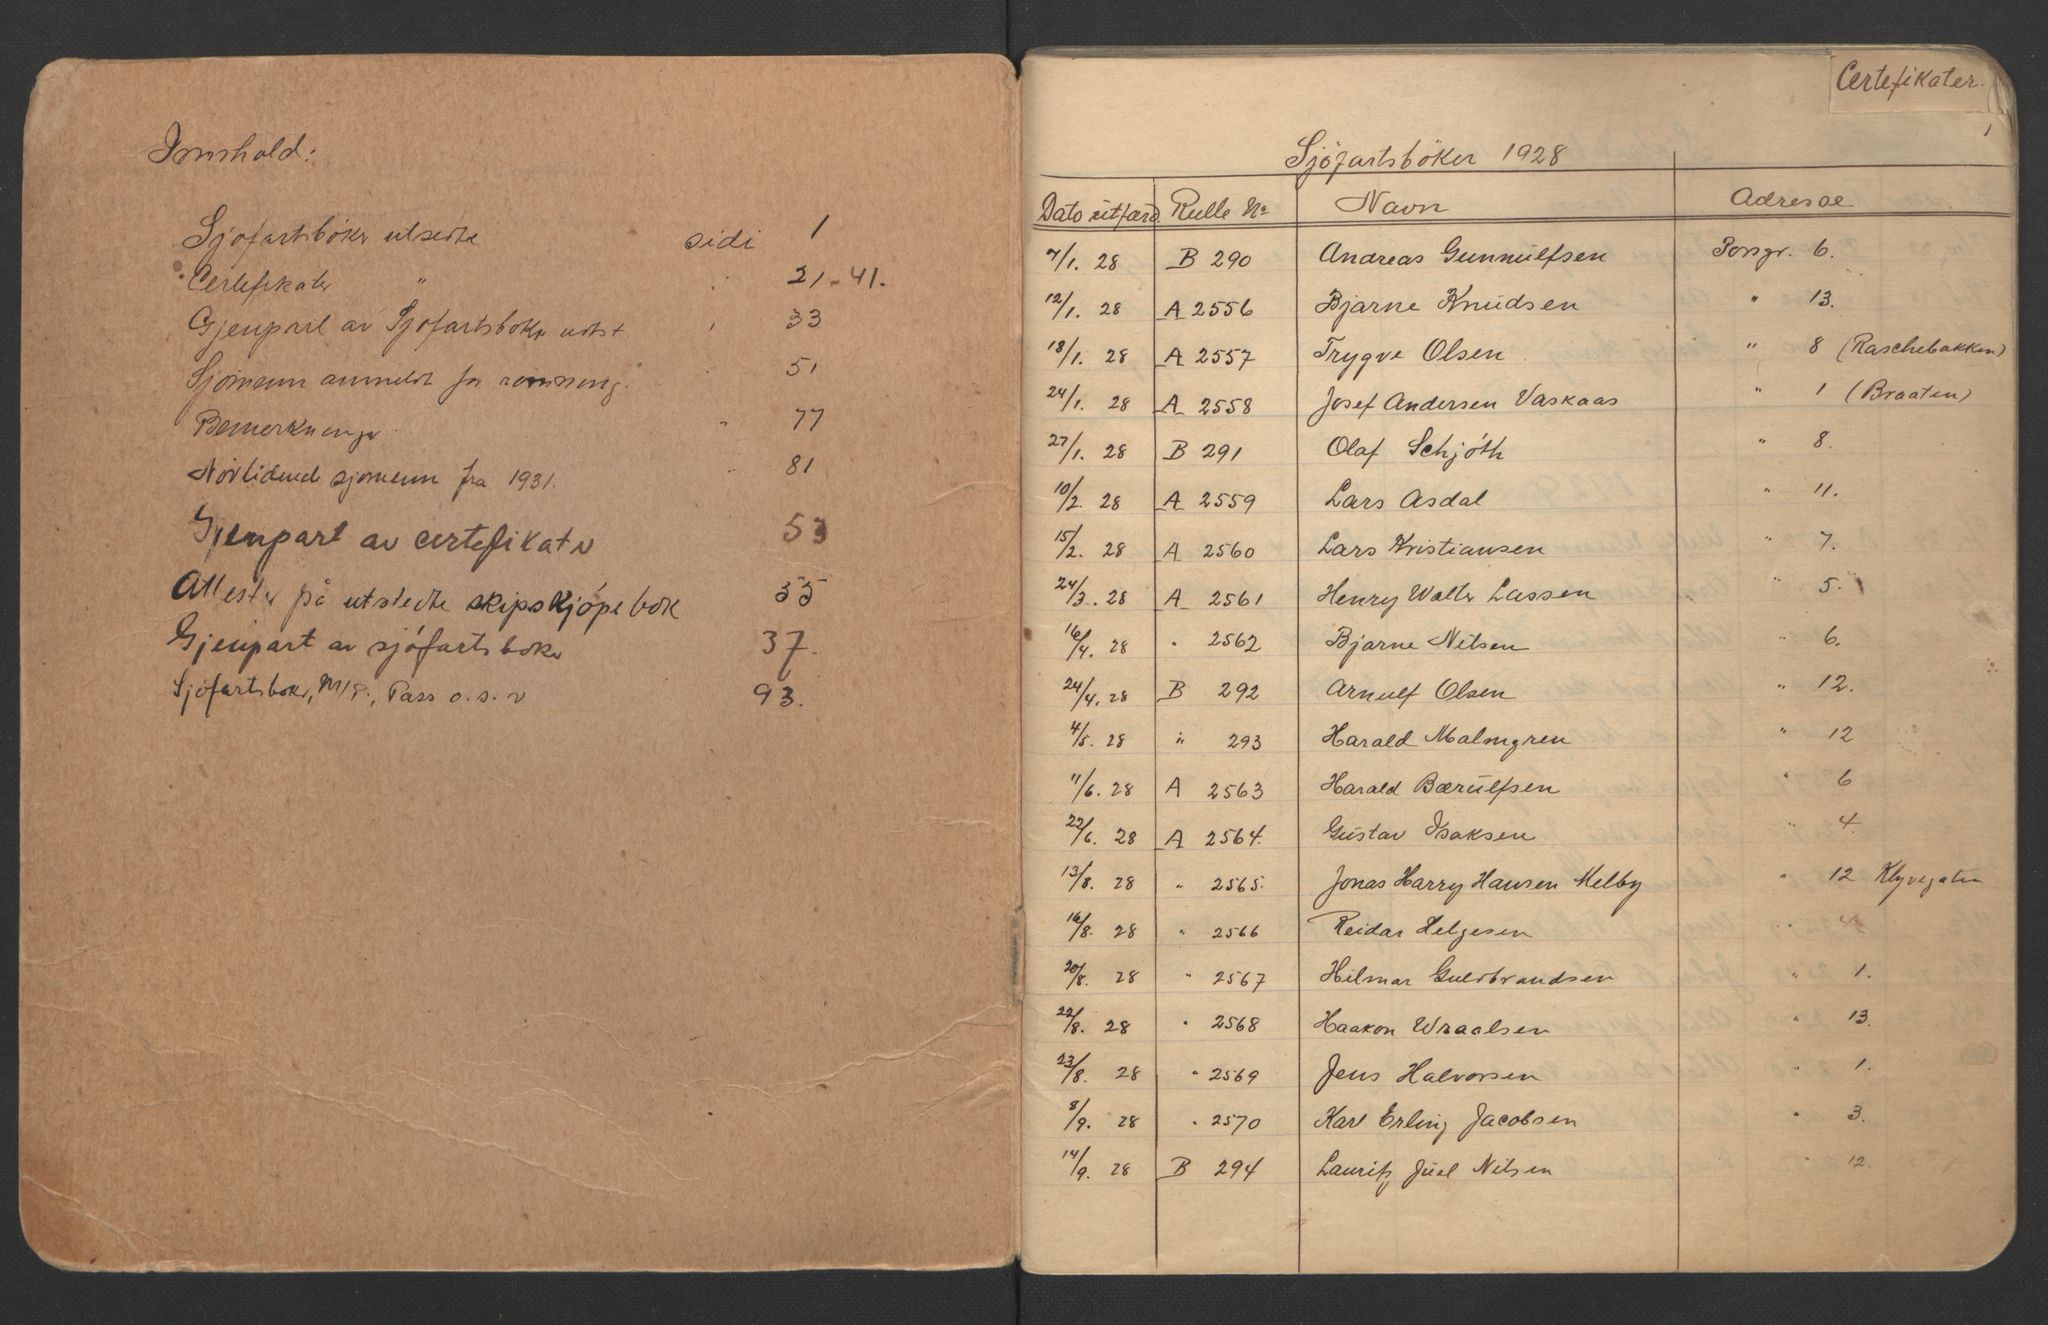 Innhold:
Sjøfartsbøker utstedte sidi 1
Certefikater " 21-41.
Gjenpart av Sjøfartsbøker utst 33
Sjømenn anmeldt for rømning. 51
Bemerkninger " 77
Nødlidende sjømenn fra 1931. 81
Gjenpart av certefikater 53
Attester på utstedte skipskjøpebok 55
Gjenpart av sjøfartsbøker 37.
Sjøfartsbøker, M/R., Pass o.s.v 93.
Certefikater.
1
Sjöfartsböker 1928
Dato utfærd. Rulle No Navn Adresse
7/1. 28 B 290 Andreas Gunnulfsen Porsgr. 6.
12/1. 28 A 2556 Bjarne Knudsen " 13.
18/1. 28 A 2557 Trygve Olsen " 8 (Raschebakken)
24/1. 28 A 2558 Josef Andersen Vaskaas " 1 (Braaten)
27/1. 28 B 291 Olaf Schjöth " 8.
10/2. 28 A 2559 Lars Asdal " 11.
15/2. 28 A 2560 Lars Kristiansen " 7.
24/3. 28 A 2561 Henry Walter Lassen " 5.
16/4. 28 " 2562 Bjarne Nilsen " 6.
24/4. 28 B 292 Arnulf Olsen " 12.
4/5. 28 " 293 Harald Malmgren " 12
11/6. 28 A 2563 Harald Bærulfsen " 6
22/6. 28 A 2564. Gustav Isaksen " 4.
13/8. 28 " 2565. Jonas Harry Hansen Melby " 12 Klyvegaten
16/8. 28 " 2566 Reidar Helgesen " 4
20/8. 28 " 2567 Hilmar Guldbrandsen " 1.
22/8. 28 " 2568 Haakon Wraalsen " 13.
23/8. 28 " 2569 Jens Halvorsen " 1.
8/9. 28 " 2570 Karl Erling Jacobsen " 3.
14/9. 28 B 294 Lauritz Juel Nilsen " 12.